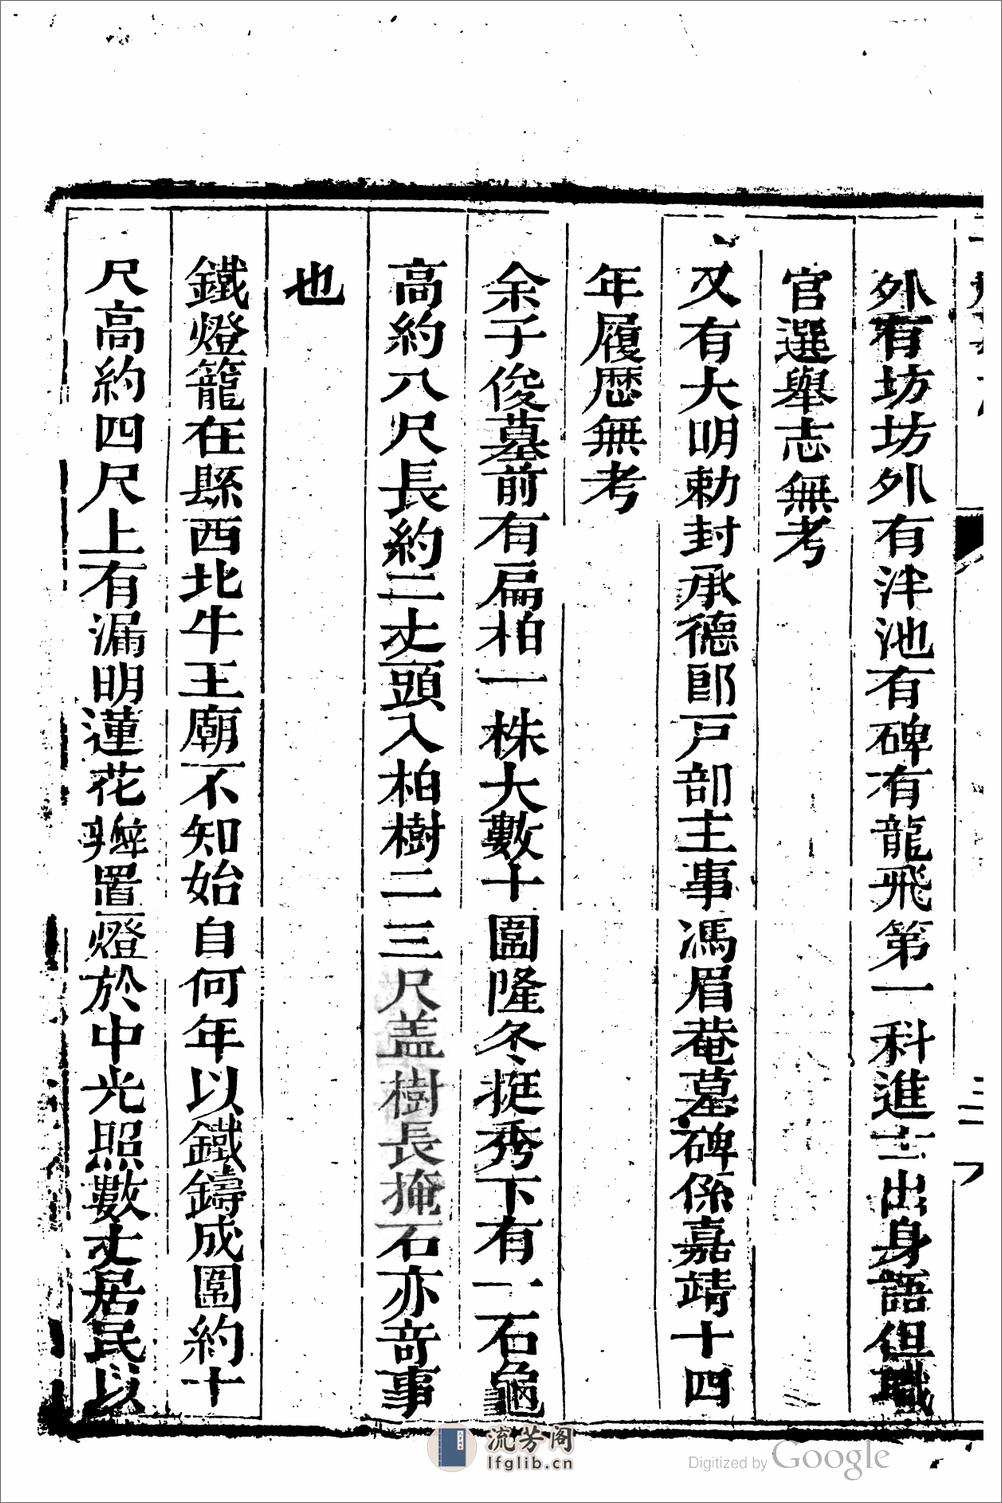 外有坊坊外有泮池有碑有龍飛第一科進士出身語但職
官選舉志無考
又有大明勅封承德郎戸部主事馮眉菴墓碑係嘉靖十四
年履歴無考
余子俊墓前有扁柏一株大數十圍隆冬挺秀下有一石龜
高約八尺長約二丈頭入柏樹二三尺盖樹長掩石亦竒事
也
鐵燈籠在縣西北牛王廟不知始自何年以鐵鑄成圍約十
尺高約四尺上有漏明蓮花瓣置燈於中光照數丈居民以
流芳阁
lfglib.cn
Digitized by Google